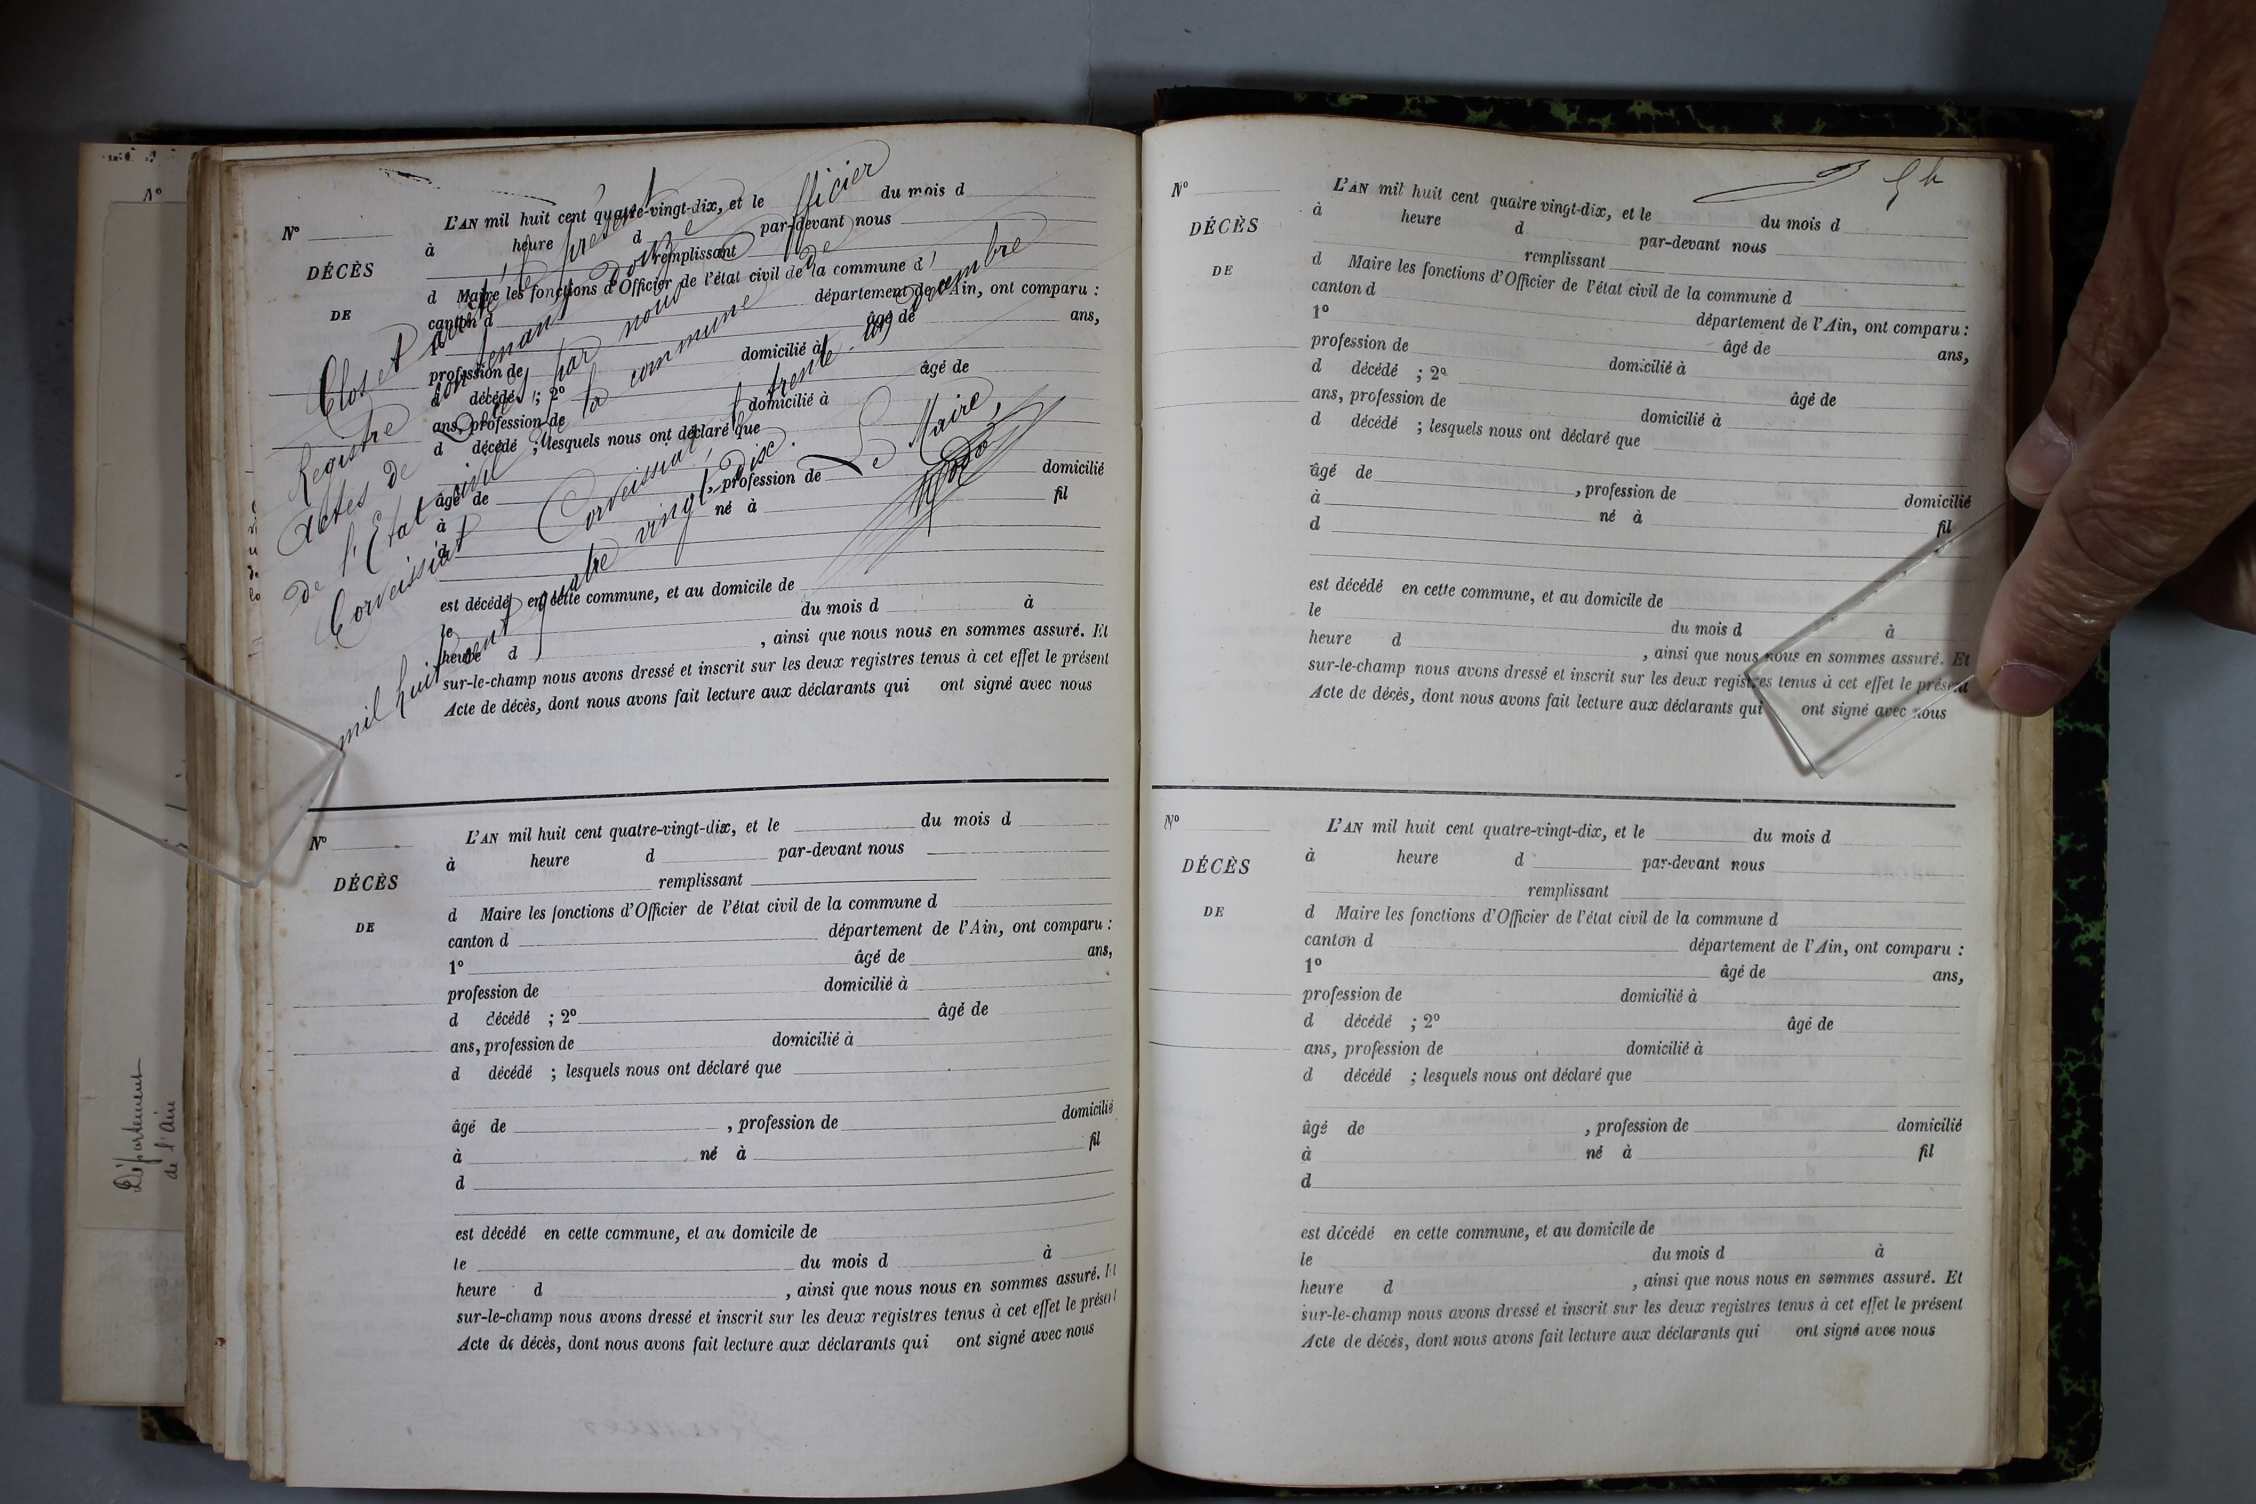 N°
DÉCÈS
DE
L'AN mil huit cent quatre-vingt-dix, et le du mois d
à heure d par-devant nous
remplissant
d Maire les fonctions d'Officier de l'état civil de la commune d
canton d département de l'Ain, ont comparu :
âgé de ans,
profession de domicilié à
d décédé ; 2° âgé de
ans, profession de domicilié à
d décédé ; lesquels nous ont déclaré que
âgé de , profession de domicilié
à né à fil
d
est décédé en cette commune, et au domicile de
le du mois d à
heure d , ainsi que nous nous en sommes assuré. Et
sur-le-champ nous avons dressé et inscrit sur les deux registres tenus à cet effet le présent
Acte de décès, dont nous avons fait lecture aux déclarants qui ont signé avec nous
Clos et arrêté le présent
Registre contenant douze
actes de Décès par nous officier
de l'Etat civil de la commune de
Corveissiat
Corveissiat, le trente-un Décembre
mil huit cent quatre vingt-dix.
Le Maire,
N°
DÉCÈS
DE
L'AN mil huit cent quatre-vingt-dix, et le du mois d
à heure d par-devant nous
remplissant
d Maire les fonctions d'Officier de l'état civil de la commune d
canton d département de l'Ain, ont comparu :
1° âgé de ans,
profession de domicilié à
d décédé ; 2° âgé de
ans, profession de domicilié à
d décédé ; lesquels nous ont déclaré que
âgé de , profession de domicilié
à né à fil
d
est décédé en cette commune, et au domicile de
le du mois d à
heure d , ainsi que nous nous en sommes assuré. Et
sur-le-champ nous avons dressé et inscrit sur les deux registres tenus à cet effet le présent
Acte de décès, dont nous avons fait lecture aux déclarants qui ont signé avec nous
N°
Département
de l'Ain
N°
DÉCÈS
DE
L'AN mil huit cent quatre vingt-dix, et le du mois d
à heure d par-devant nous
remplissant
d Maire les fonctions d'Officier de l'état civil de la commune d
canton d département de l'Ain, ont comparu :
1° âgé de ans,
profession de domicilié à
d décédé ; 2° âgé de
ans, profession de domicilié à
d décédé ; lesquels nous ont déclaré que
âgé de , profession de domicilié
à né à fil
d
est décédé en cette commune, et au domicile de
le du mois d à
heure d , ainsi que nous nous en sommes assuré. Et
sur-le-champ nous avons dressé et inscrit sur les deux registres tenus à cet effet le présent
Acte de décès, dont nous avons fait lecture aux déclarants qui ont signé avec nous
N°
DÉCÈS
DE
L'AN mil huit cent quatre-vingt-dix, et le du mois d
à heure d par-devant nous
remplissant
d Maire les fonctions d'Officier de l'état civil de la commune d
canton d département de l'Ain, ont comparu :
1° âgé de ans,
profession de domicilié à
d décédé ; 2° âgé de
ans, profession de domicilié à
d décédé ; lesquels nous ont déclaré que
âgé de , profession de domicilié
à né à fil
d
est décédé en cette commune, et au domicile de
le du mois d à
heure d , ainsi que nous nous en sommes assuré. Et
sur-le-champ nous avons dressé et inscrit sur les deux registres tenus à cet effet le présent
Acte de décès, dont nous avons fait lecture aux déclarants qui ont signé avec nous